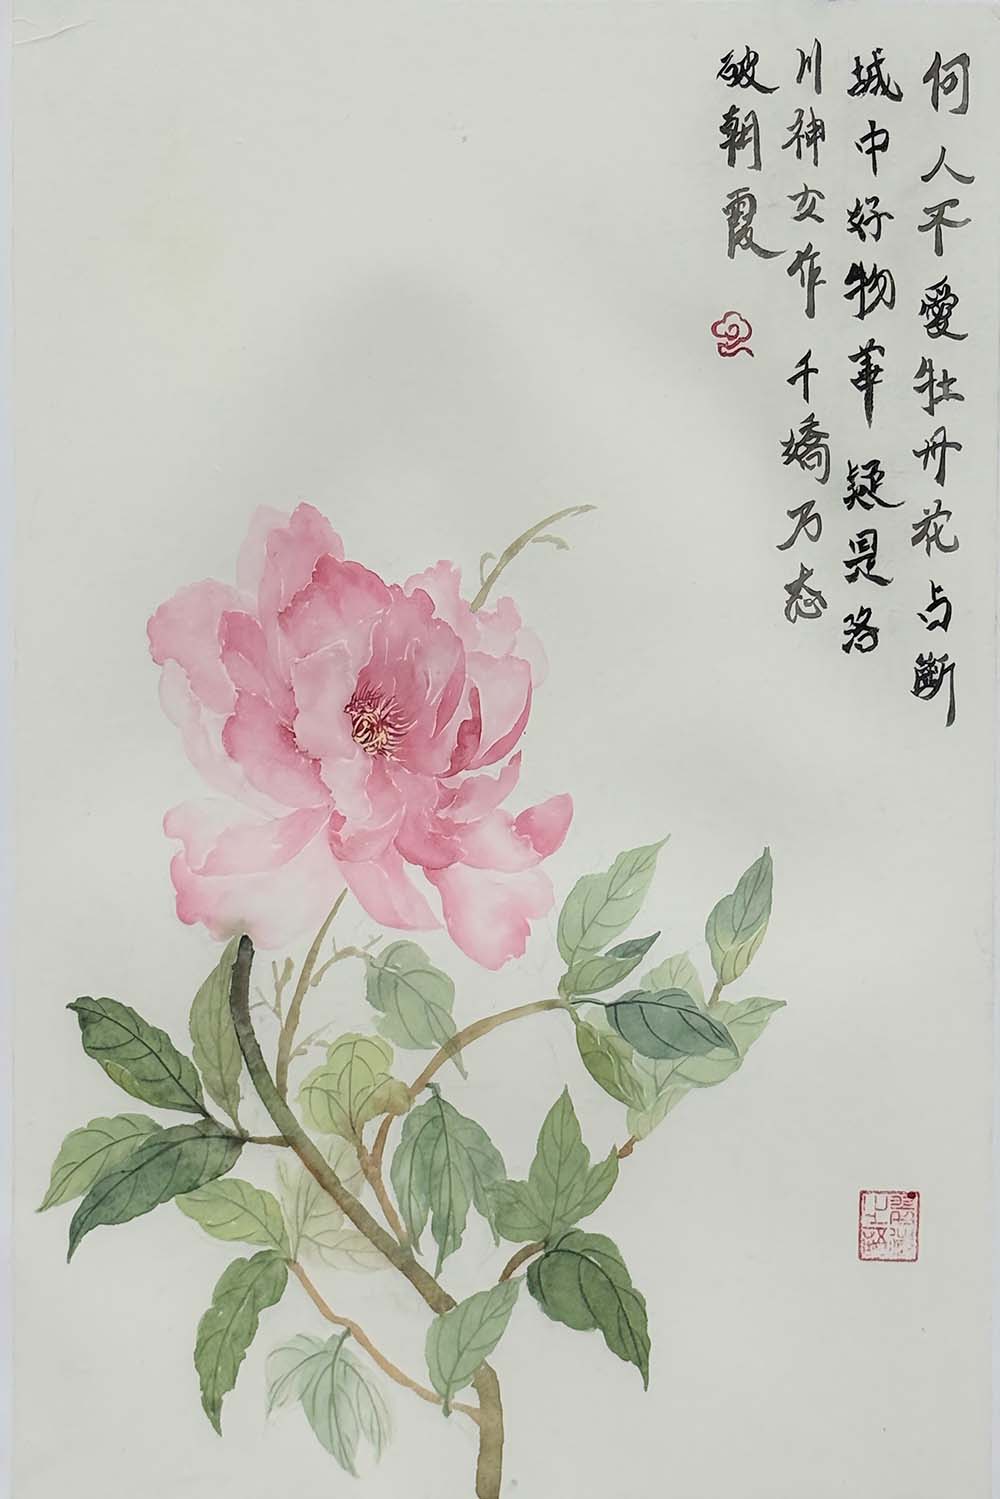 何人不愛牡丹花占斷
城中好物華疑是洛
川神女作千嬌乃态
破朝霞